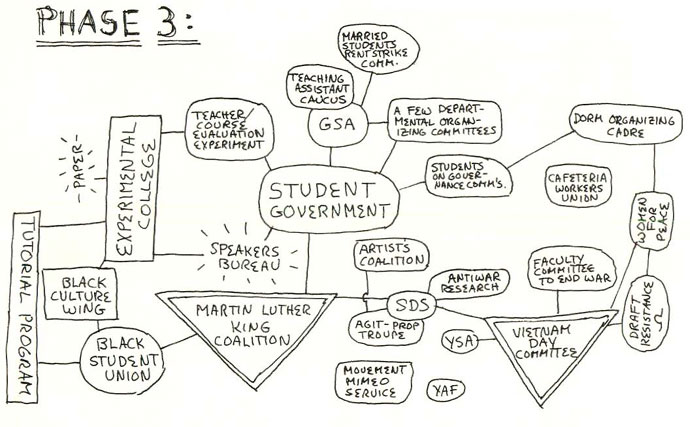 PHASE 3:
MARRIED
STUDENTS
RENT STRIKE
COMM.
TEACHING
ASSISTANT
CAUCUS
GSA
TEACHER
COURSE
EVALUATION
EXPERIMENT
A FEW DEPART-
MENTAL ORGAN-
IZING COMMITTEES
DORM ORGANIZING
CADRE
-PAPER-
EXPERIMENTAL
COLLEGE
STUDENT
GOVERNMENT
STUDENTS
ON GOVER-
NANCE COMM'S.
CAFETERIA
WORKERS
UNION
WOMEN
FOR
PEACE
TUTORIAL PROGRAM
SPEAKERS
BUREAU
ARTISTS
COALITION
FACULTY
COMMITTEE
TO END WAR
BLACK
CULTURE
WING
ANTIWAR
RESEARCH
MARTIN LUTHER
KING
COALITION
SDS
AGIT-PROP
TROUPE
YSA
VIETNAM
DAY
COMMITTEE
DRAFT
RESISTANCE
Ω
BLACK
STUDENT
UNION
MOVEMENT
MIMEO
SERVICE
YAF